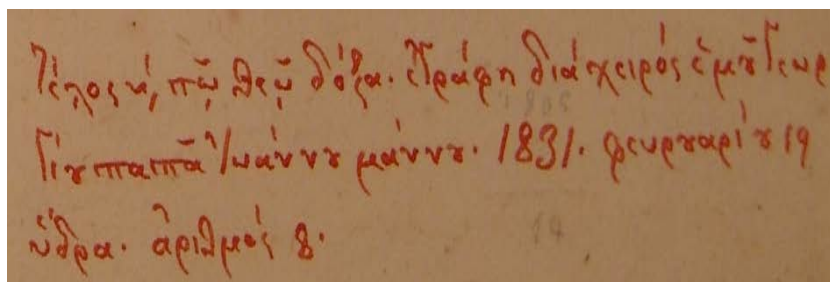 Τέλος κ', τῷ θεῷ δόξα. ἐγράφη διά χειρός ἐμοῦ Γεωρ
γίου παπᾶ Ἰωάννου μάννου. 1831. φευρουαρίου 19
ὕδρα. ἀριθμός 8.